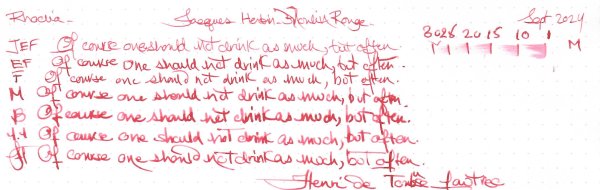 Rhodia. Jacques Herbin Rouge. Sept 2024
30 25 20 15 10 1
M M
JEF Of course one should not drink as much, but often.
EF Of course one should not drink as much, but often.
F Of course one should not drink as much, but often.
M Of course one should not drink as much, but often.
B Of course one should not drink as much, but often.
Of course one should not drink as much, but often.
Of course one should not drink as much, but often.
Henri de Toulouse Lautrec